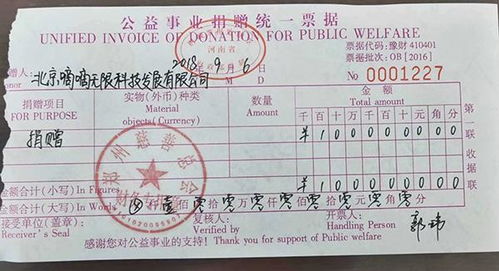 公益事业捐赠统一票据
UNIFIED INVOICE OF DONATION FOR PUBLIC WELFARE
河南省
票据代码：豫财 410401
票据批次：OB[2016]
赠人：北京嘀嘀无限科技发展有限公司 2018 9 6
onor Y M D
No 0001227
捐赠项目 实物(外币)种类 数量 金额
FOR PURPOSE Material objects(Currency) Amount Total amount
千百十万千百十元角分
捐赠 ¥100000000
金额合计（小写）In Figures ¥100000000
金额合计（大写）In Words 仟壹佰零拾零万零仟零佰零拾零元零角零分
接受单位（盖章）： 复核人： 开票人：郭玮
Receiver's Seal Verified by Handling Person
感谢您对公益事业的支持！Thank you for support of Public welfare
联
收
据
联
郑州慈善总会